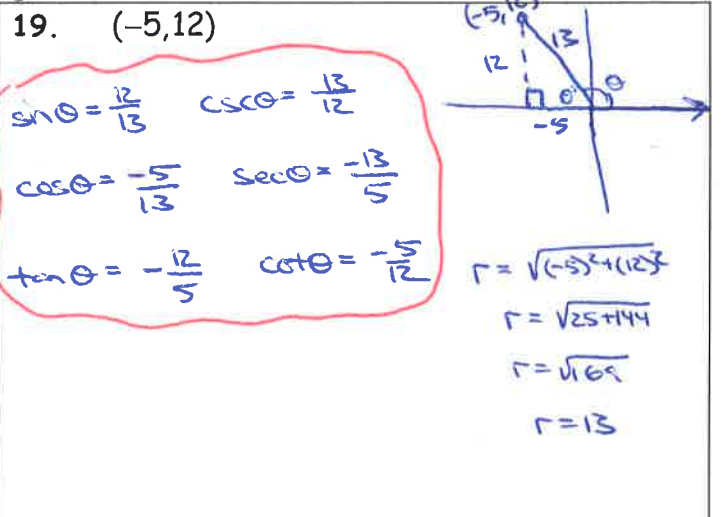 19. (−5,12)
sinθ = 12/13 cscθ = 13/12
cosθ = -5/13 secθ = -13/5
tanθ = -12/5 cotθ = -5/12
(-5,12)
13
12
θ' θ
-5
r = √(-5)²+(12)²
r = √25+144
r = √169
r = 13